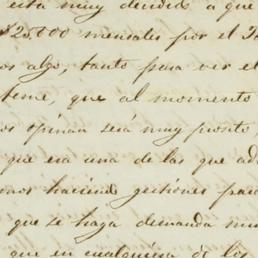 está muy decidido a que
$25.000 mensales por el
os algo, tanto para ver el
teme, que al momento
os opinan será muy pronto,
que era una de las que
mos haciendo gestiones para
que se haga demanda
que en cualquiera de los